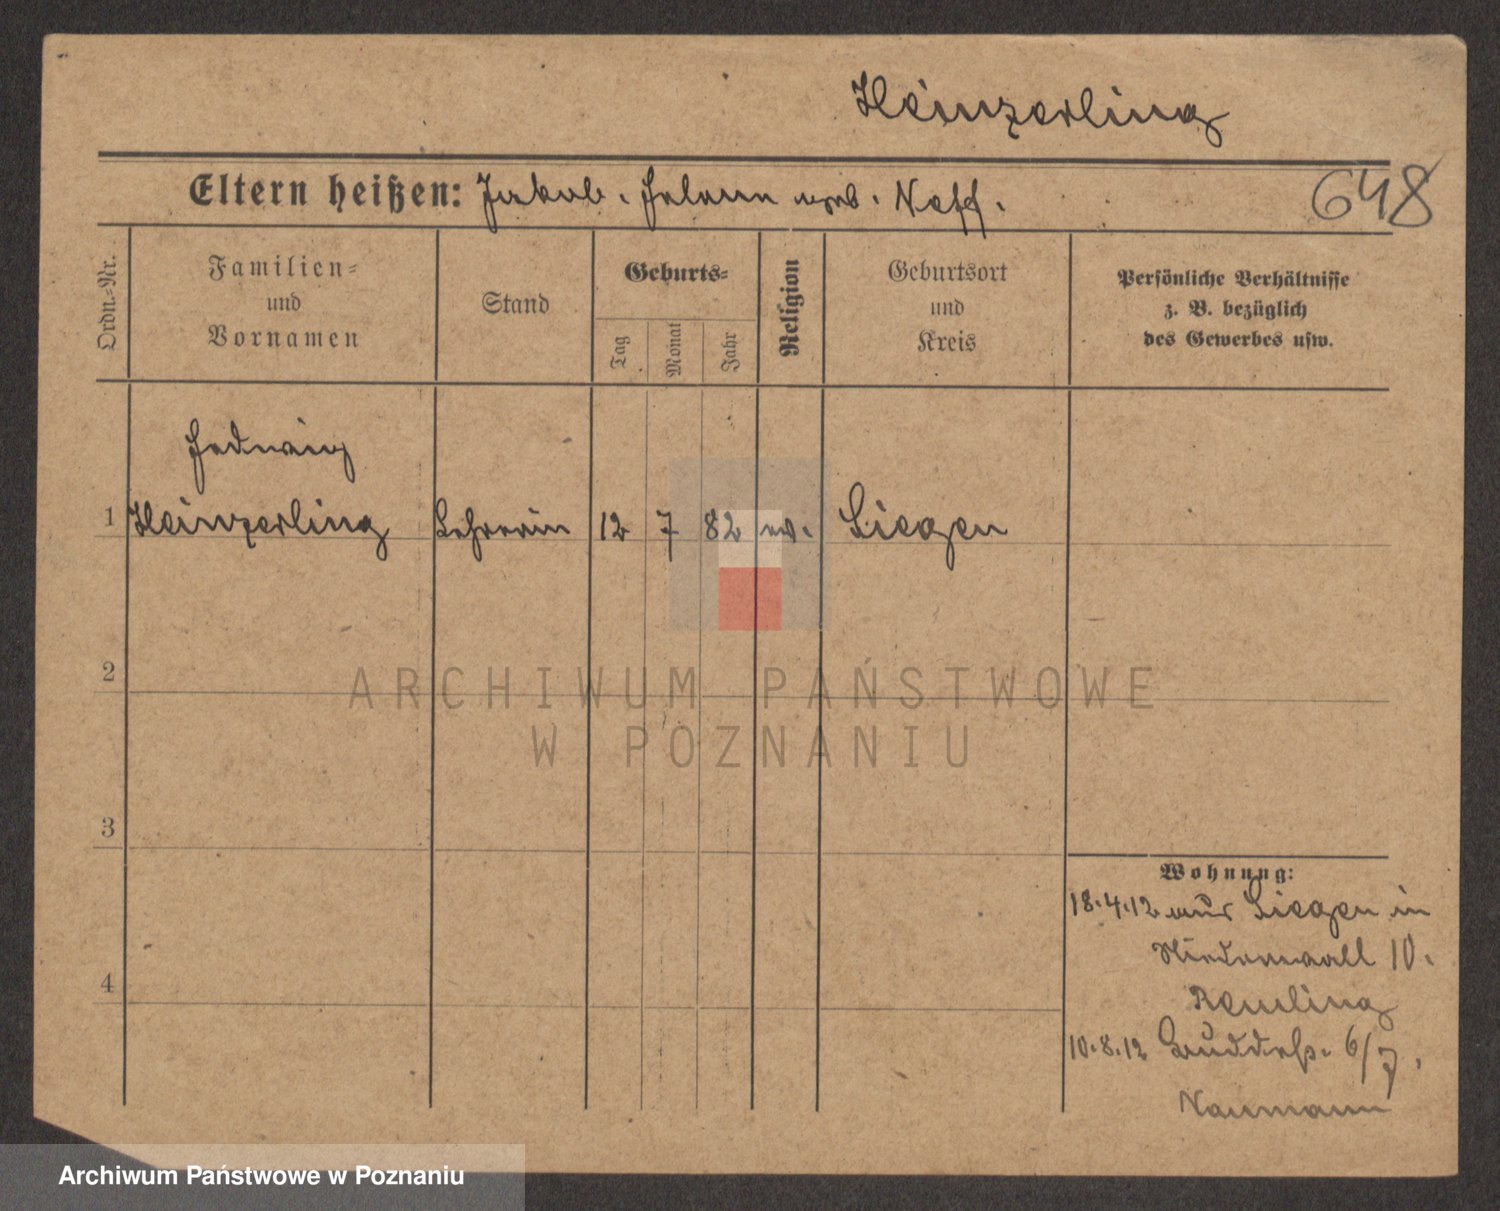 Heinzerling
Eltern heißen: Jakob. Helene geb. Neff.
648
Ordn.-Nr.
Familien-
und
Vornamen
Stand
Geburts-
Tag
Monat
Jahr
Religion
Geburtsort
und
Kreis
Persönliche Verhältnisse
z. B. bezüglich
des Gewerbes usw.
Hedwig
1 Heinzerling Lehrerin 12 7 82 ev. Siegen
2
ARCHIWUM PAŃSTWOWE
W POZNANIU
3
Wohnung:
18.4.12 aus Siegen in
Niederwall 10.
4
10.8.12 6/7.
Naumann
Archiwum Państwowe w Poznaniu